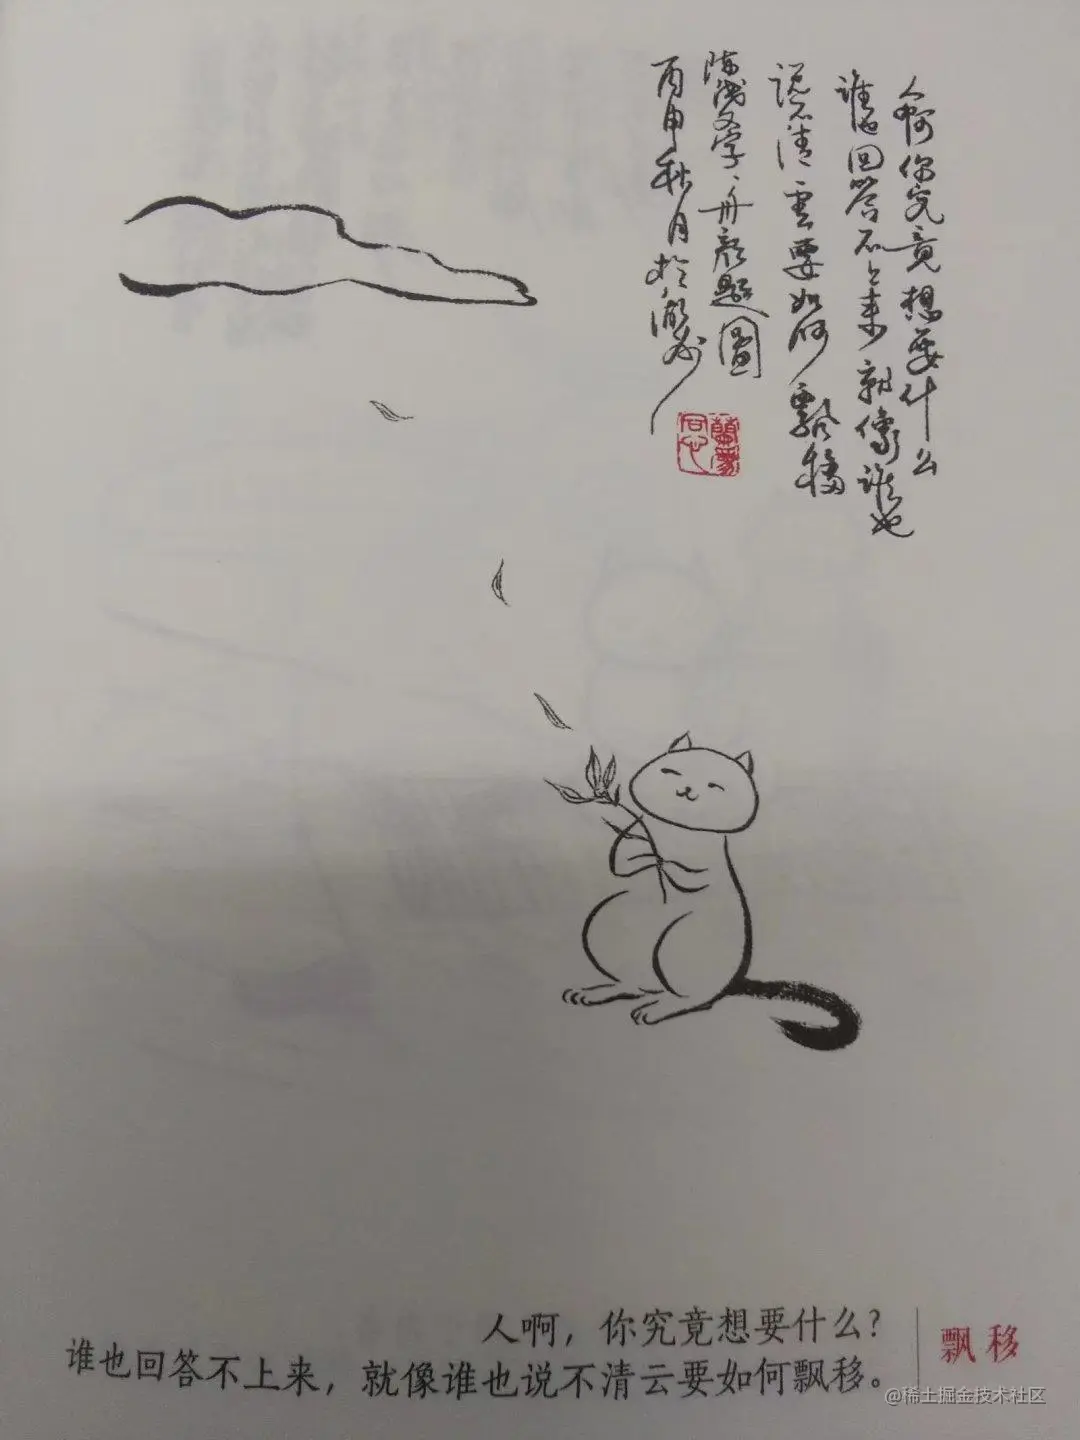 人啊你究竟想要什么
谁也回答不上来就像谁也
说不清云要如何飘移
文字、舟颜题圖
丙申秋月於
人啊，你究竟想要什么？
谁也回答不上来，就像谁也说不清云要如何飘移。
飘移
@稀土掘金技术社区